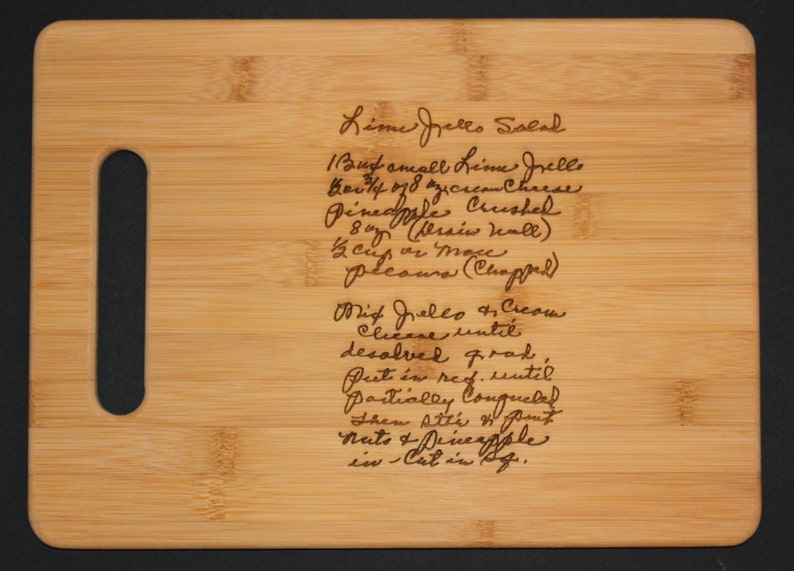 Lime Jello Salad
1 Box small Lime Jello
½ or ¾ of 8 oz. cream Cheese
Pineapple Crushed
8 oz (Drain Well)
½ cup or More
pecans (Chopped)
Mix Jello & Cream
Cheese until
desolved
Put in ref. until
partially Congueled
then stir & put
Nuts & Pineapple
in - Cut in Sq.